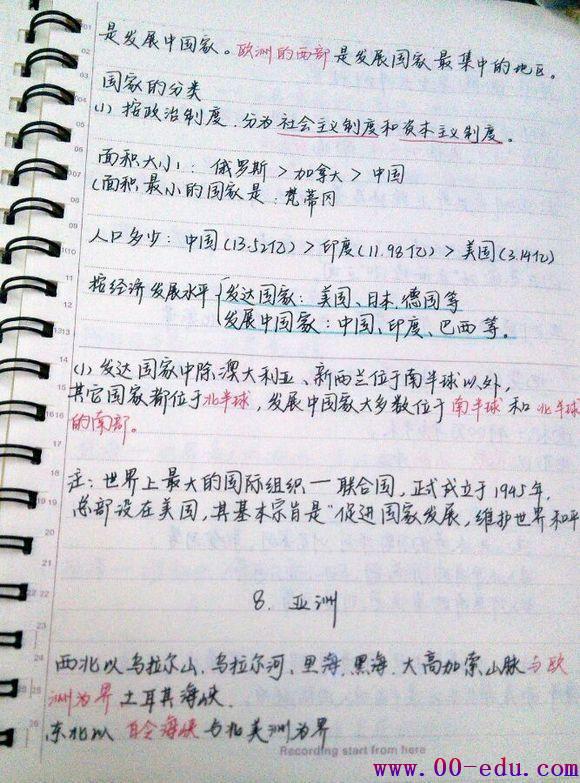 是发展中国家。欧洲的西部是发展国家最集中的地区。
国家的分类
(1) 按政治制度.分为社会主义制度和资本主义制度。
面积大小: 俄罗斯>加拿大>中国
(面积最小的国家是:梵蒂冈
人口多少:中国(13.52亿)>印度(11.98亿)>美国(3.14亿)
按经济发展水平{发达国家:美国、日本、德国等
发展中国家:中国、印度、巴西等.
(1)发达国家中除澳大利亚、新西兰位于南半球以外,
其它国家都位于北半球,发展中国家大多数位于南半球和北半球
的南部。
注:世界上最大的国际组织一联合国,正式成立于1945年,
总部设在美国,其基本宗旨是"促进国家发展,维护世界和平
8. 亚洲
西北以乌拉尔山、乌拉尔河、里海、黑海、大高加索山脉与欧
洲为界 土耳其海峡.
东北以白令海峡与北美洲为界
Recording start from here
www.00-edu.com